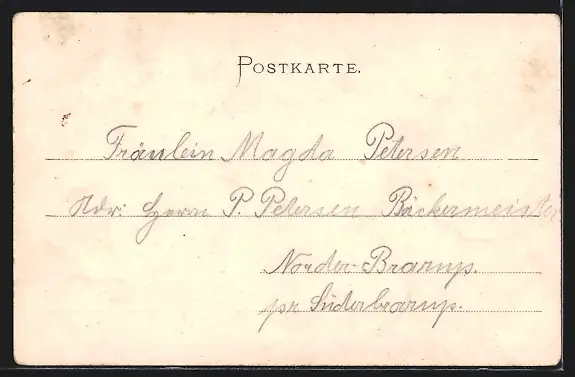 POSTKARTE.
Fräulein Magda Petersen
Adr: Herrn P. Petersen Bäckermeister
Norder-Brarup.
pr Süderbrarup.